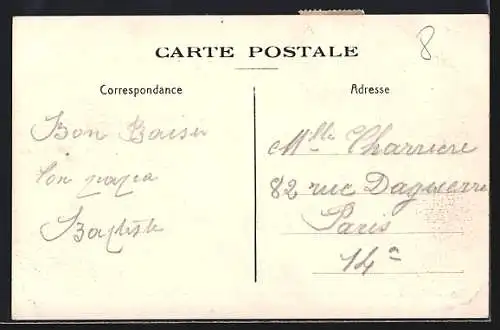 8
CARTE POSTALE
Correspondance
Adresse
Bon Baiser
Ton papa
Baptiste
Mlle Charriere
82 rue Daguerre
Paris
14e